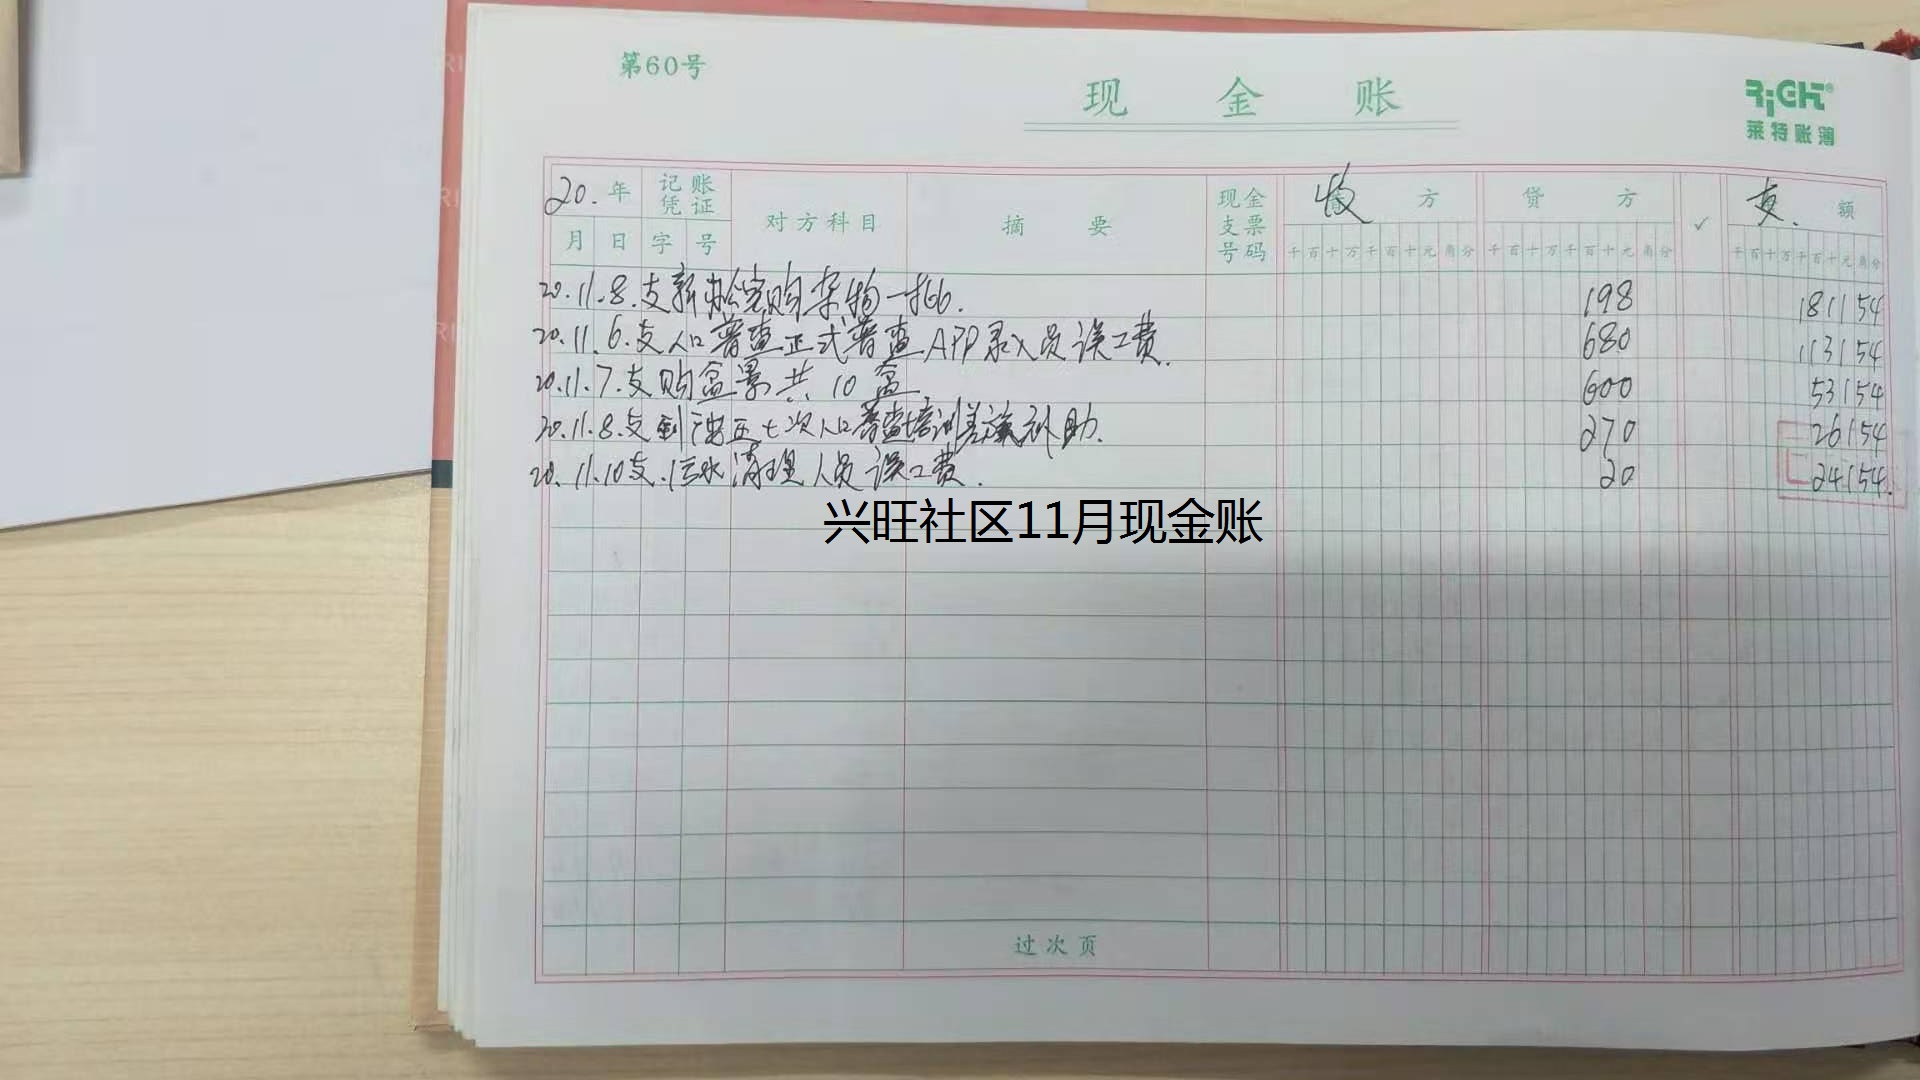 第60号
现 金 账
RiGHT®
莱特账簿
20. 年 记账凭证 对方科目 摘 要 现金支票号码 收 方 贷 方 ✓ 支. 额
月 日 字 号 千百十万千百十元角分 千百十万千百十元角分 千百十万千百十元角分
20.11.8.支新 购杂物一批. 198 181154
20.11.6.支人口普查正式普查APP录入员误工费. 680 113154
20.11.7.支购盆景共10盆 600 53154
20.11.8.支到 七次人口普查培训差旅补助. 270 26154
20.11.10支.污水清理人员误工费. 20 24154.
兴旺社区11月现金账
过次页